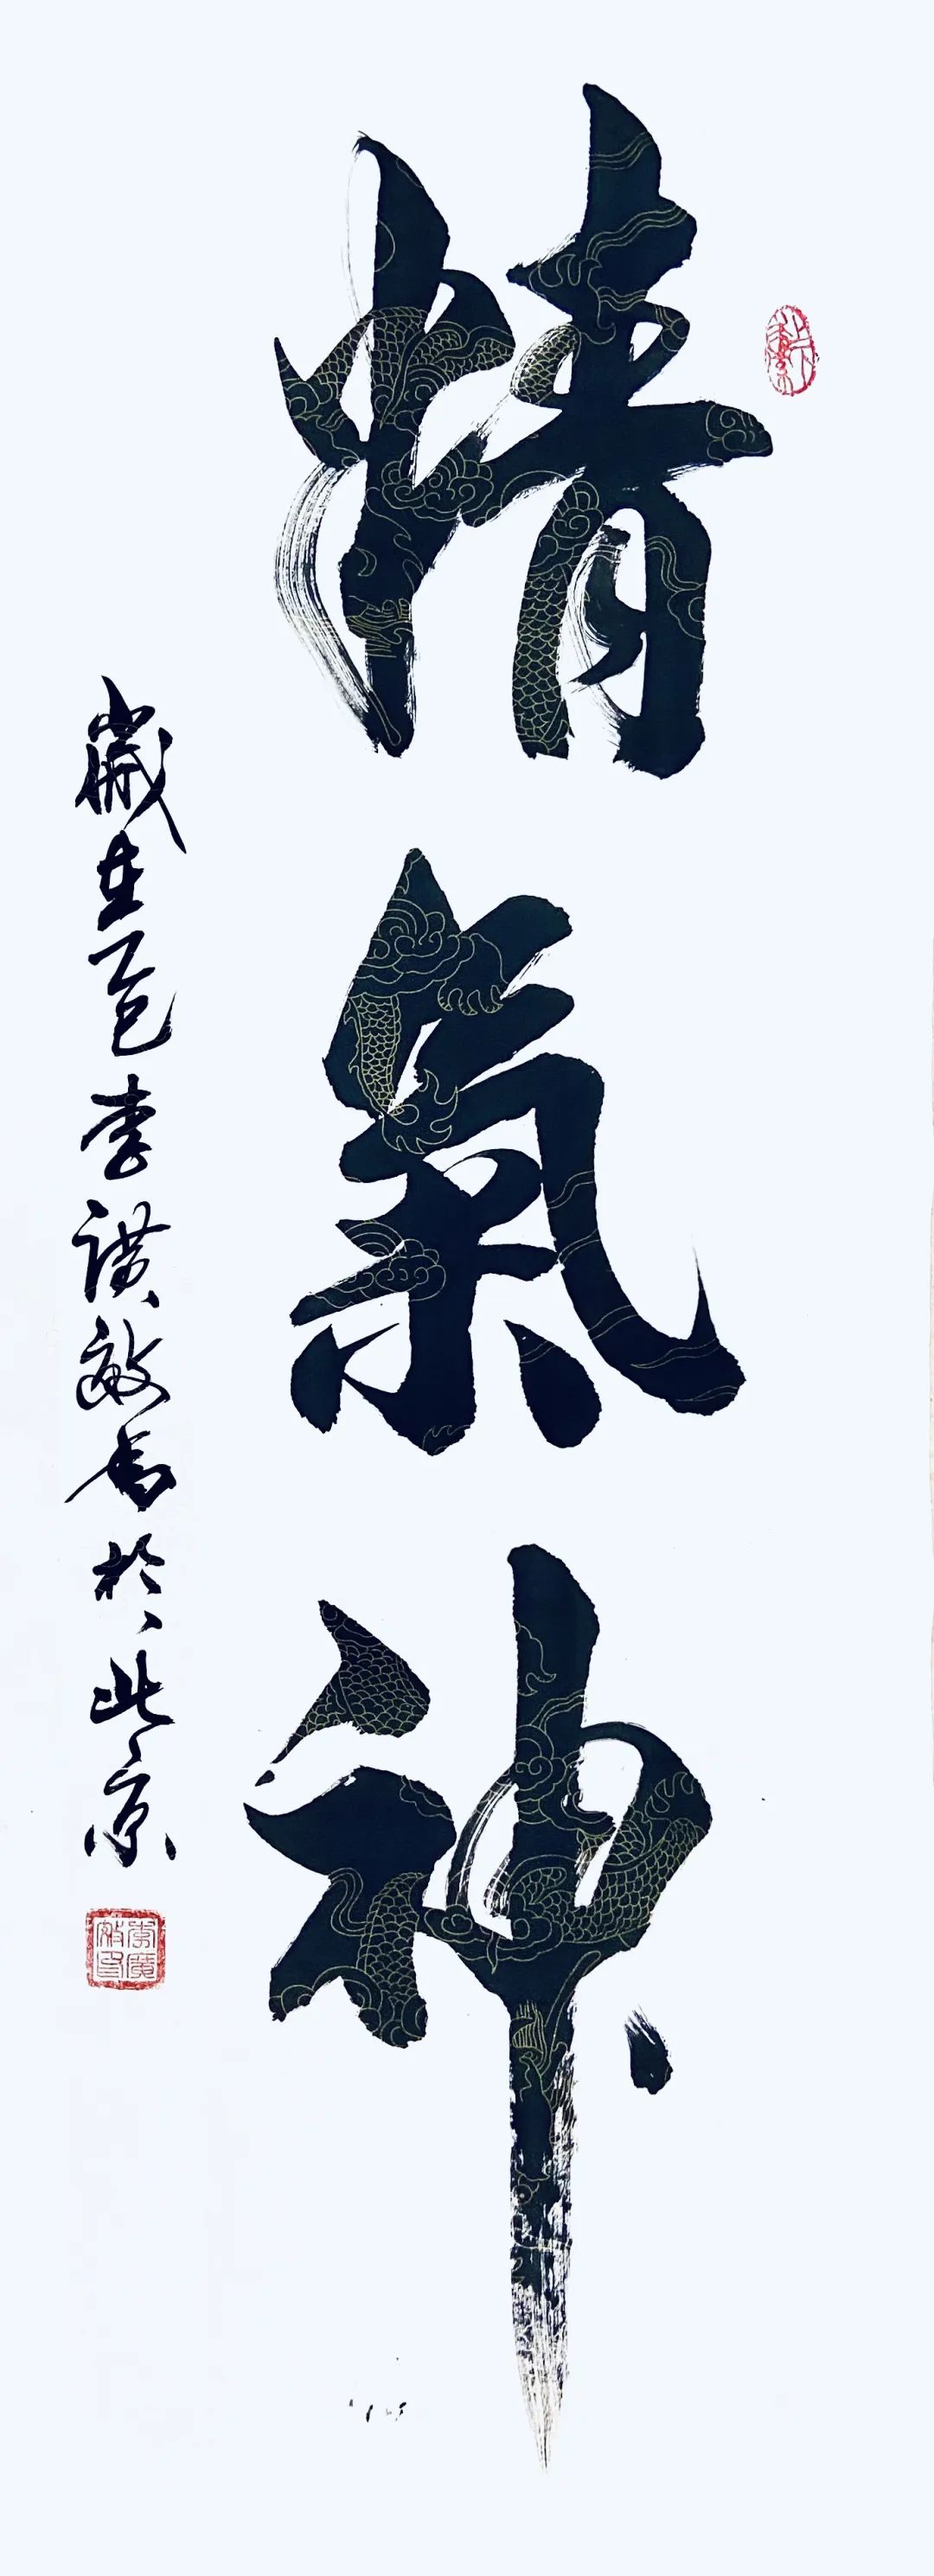 精氣神
歲在乙巳李讚敏書於北京